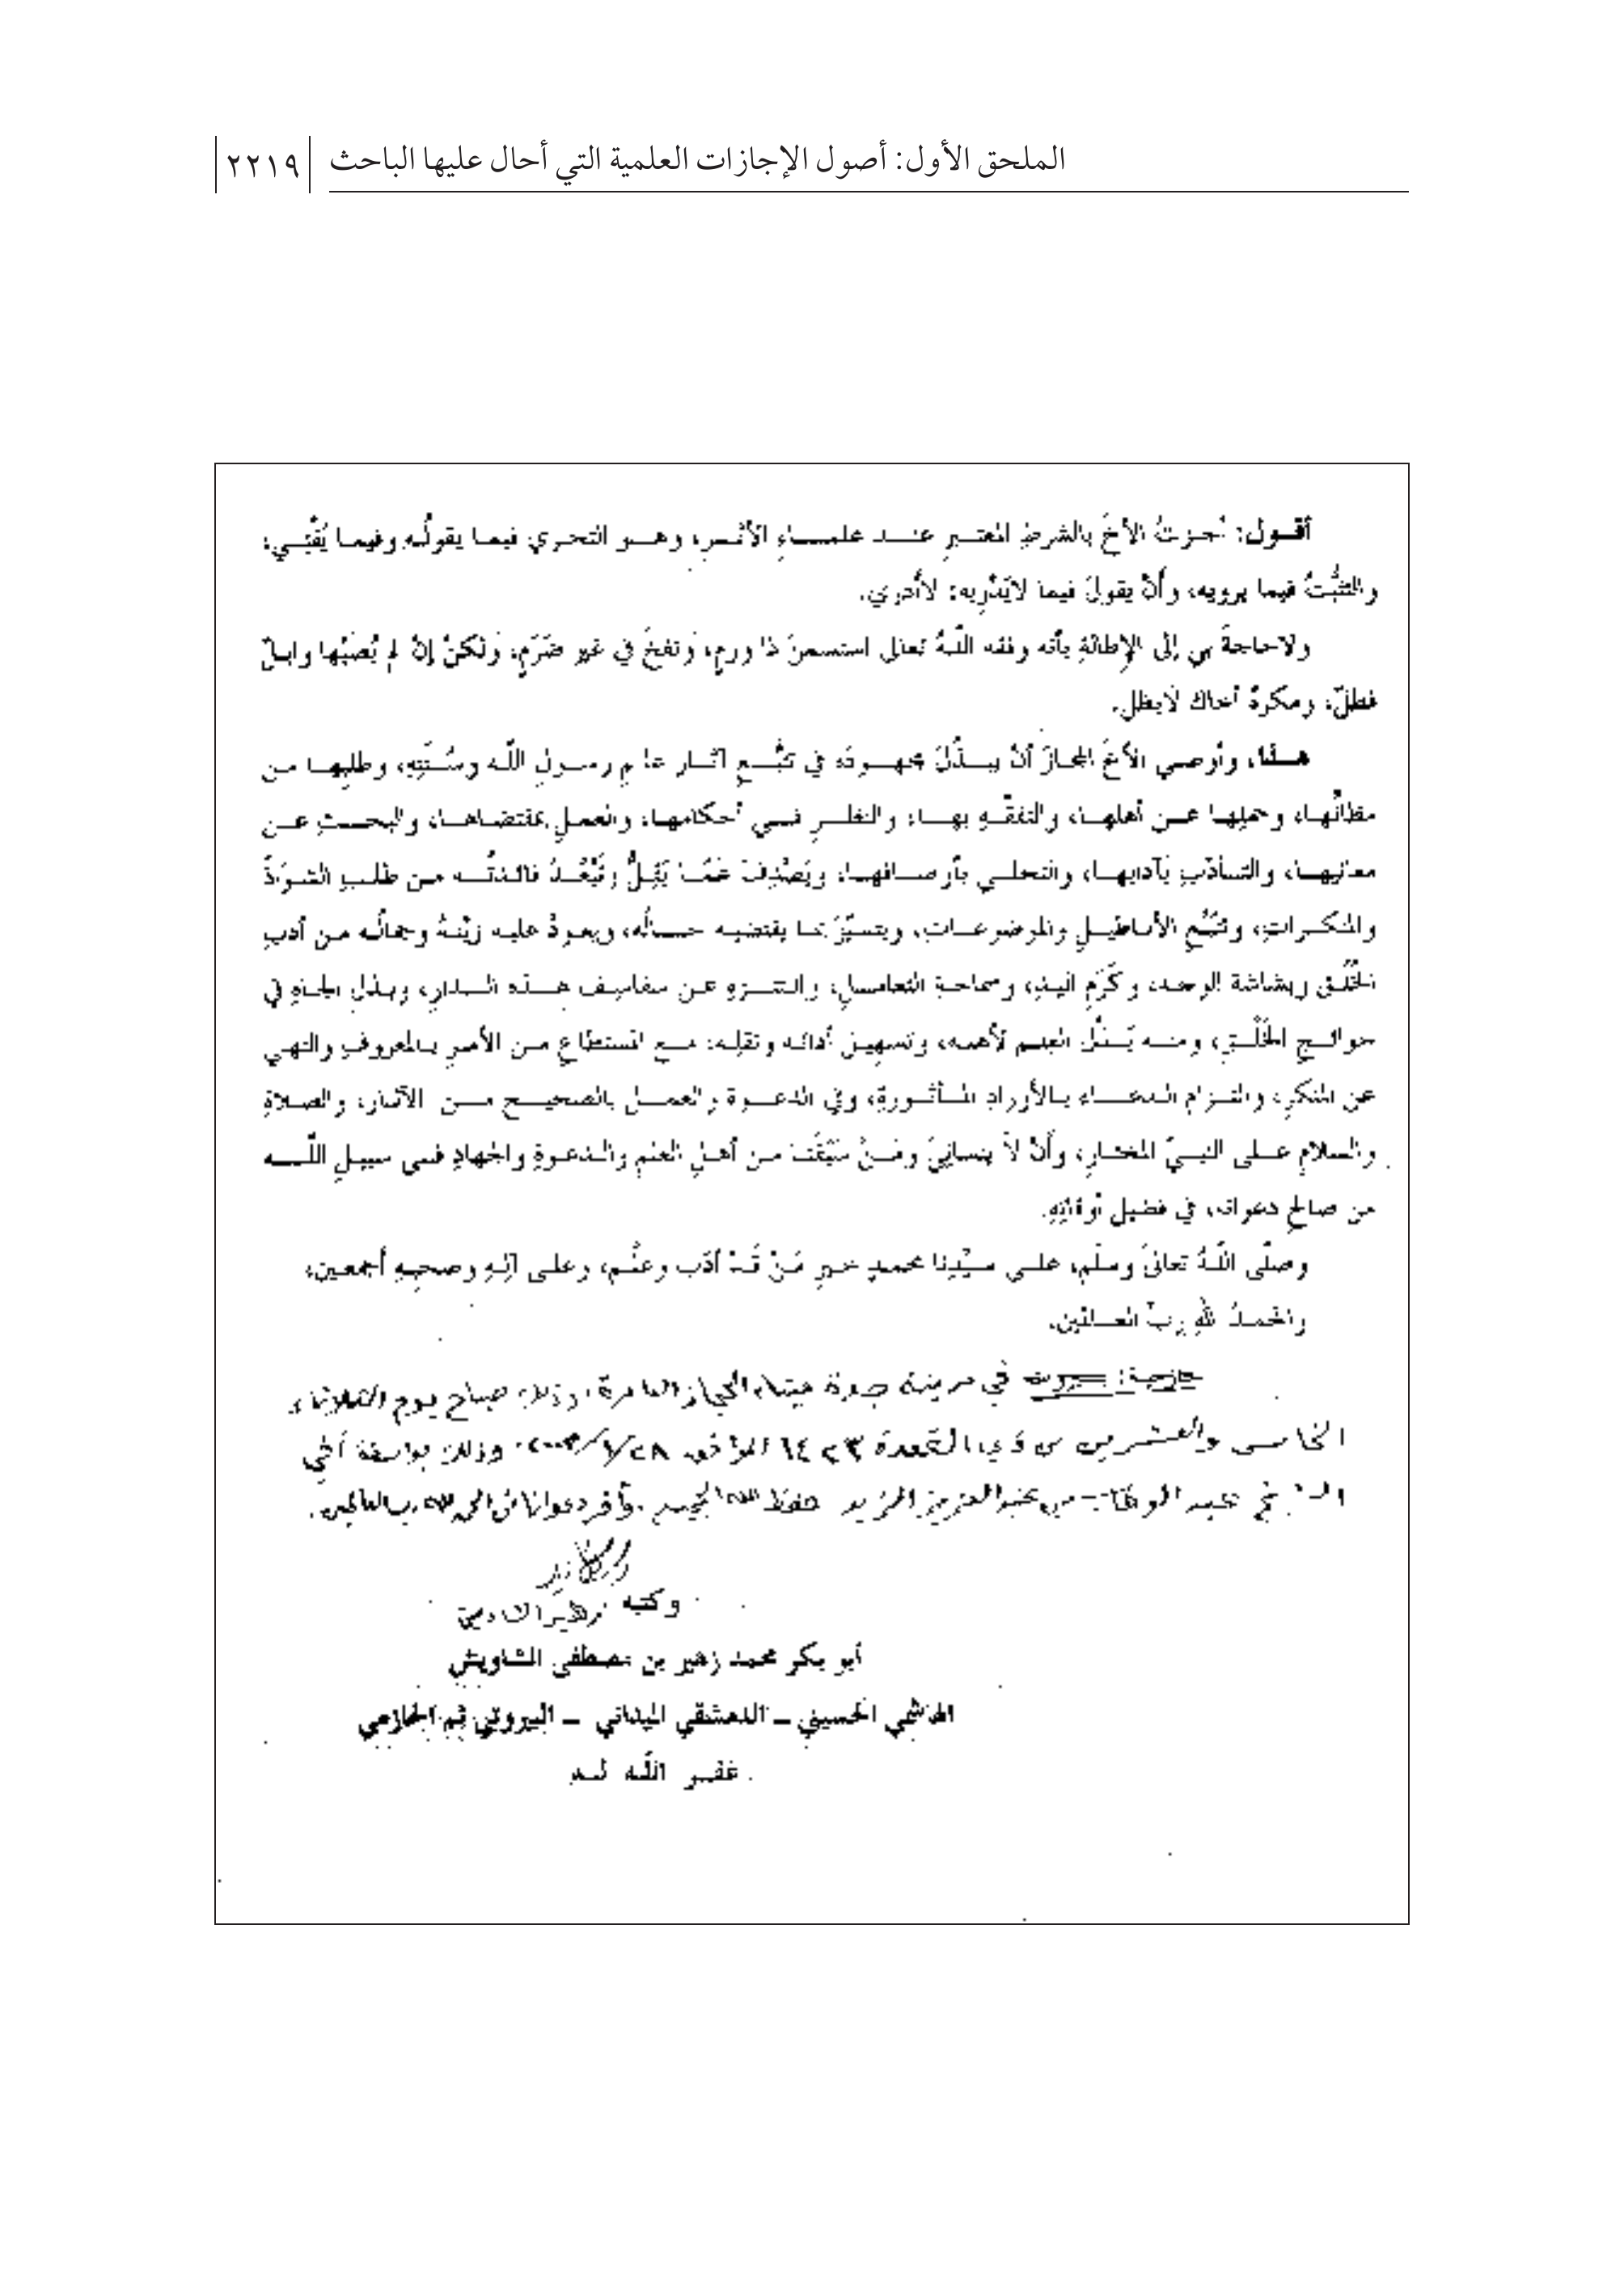 الملحق الأول: أصول الإجازات العلمية التي أحال عليها الباحث
٢٢١٩
أقول: أجزتُ الأخَ بالشرطِ المعتبرِ عند علماءِ الأثر، وهو التحري فيما يقولُه وفيما يُفْتي،
والتثبُّتُ فيما يرويه، وأنْ يقولَ فيما لايَدْرِيه: لاأدري.
ولاحاجةَ بي إلى الإطالةِ بأنه وفقه اللّهُ تعالى استسمنَ ذا ورمٍ، وَنفخَ في غير ضَرَمٍ، وَلكنْ إنْ لم يُصبْها وابلٌ
فطلٌ، ومكرهٌ أخاك لابطل.
هذا، وأوصي الأخَ المجازَ أنْ يبذُلَ مجهودَه في تتبُّعِ آثار رسولِ اللّه وسُنَّتِهِ، وطلبِها من
مظانِّها، وحملِها عن أهلِها، والتفقُّهِ بها، والنظرِ في أحكامها، والعملِ بمقتضاها، والبحثِ عن
معانيها، والتأدّبِ بآدابها، والتحلي بأوصافها، ويَصْدِفَ عَمَّا يَقِلُّ وتَبْعُدُ فائدتُه من طلبِ الشواذِّ
والمنكراتِ، وتتبُّعِ الأباطيلِ والموضوعاتِ، بما يقتضيه حالُه، ويعودُ عليه زيْنهُ وجمالُه من أدبِ
الخُلُق وبشاشة الوجه، وكَرَمِ اليدِ، وسماحةِ التعاملِ، والتنزهِ عن سفاسِف هذه الدارِ، وبذلِ الجاهِ في
حوائجِ الخَلْقِ، ومنه بَذْلُ العِلم لأهله، وتسهيل أدائه ونقلِه، مع المستطاعِ من الأمرِ بالمعروفِ والنهي
عن المنكرِ، والتزامِ الدعاء بالأورادِ المأثورةِ، وفي الدعوة والعمل بالصحيح من الآثار، والصلاةِ
والسلامِ على النبيِّ المختارِ، وأنْ لا ينساني ومَنْ سَبَقَنا من أهلِ العلمِ والدعوةِ والجهادِ في سبيلِ اللّه
من صالحِ دعواته، في فضيلِ أوقاتِهِ.
وصلّى اللّهُ تعالى وسلّم، على سيِّدِنا محمدٍ خيرِ مَنْ أدّب وعلّم، وعلى آلِهِ وصحبِهِ أجمعين،
والحمدُ للهِ ربِّ العالمين.
في مدينة جدة الحجاز العامرة، وذلك صباح يوم الثلاثاء
الخامس والعشرين من ذي القعدة ١٤٢٣ المؤافق ٢٨/١/٢٠٠٣. وذلك بواسطة أخي
الشيخ عبد الوهاب بن عبد العزيز الزيد حفظ الله الجميع. وآخر دعوانا أن الحمد لله رب العالمين.
وكتبه زهير الشاويش
أبو بكر محمد زهير بن مصطفى الشاويش
الهاشمي الحسيني ــ الدمشقي الميداني ــ البيروتي ثم الحازمي
غفر اللّه له